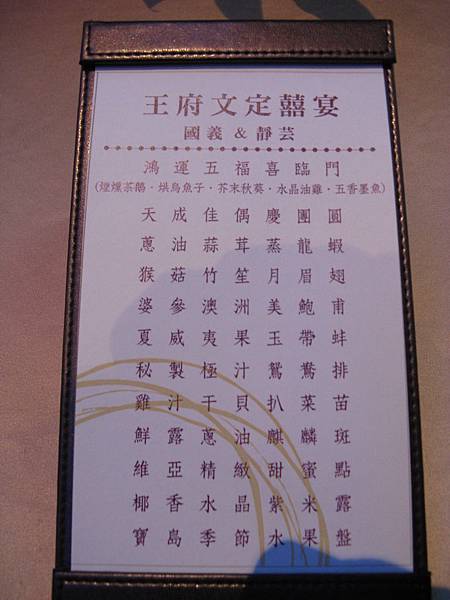 王府文定囍宴
國義 & 靜芸
鴻運五福喜臨門
(煙燻茶鵝．烘烏魚子．芥末秋葵．水晶油雞．五香墨魚)
天成佳偶慶團圓
蔥油蒜茸蒸龍蝦
猴菇竹笙月眉翅
婆參澳洲美鮑甫
夏威夷果玉帶蚌
秘製極汁鴛鴦排
雞汁干貝扒菜苗
鮮露蔥油麒麟斑
維亞精緻甜蜜點
椰香水晶紫米露
寶島季節水果盤